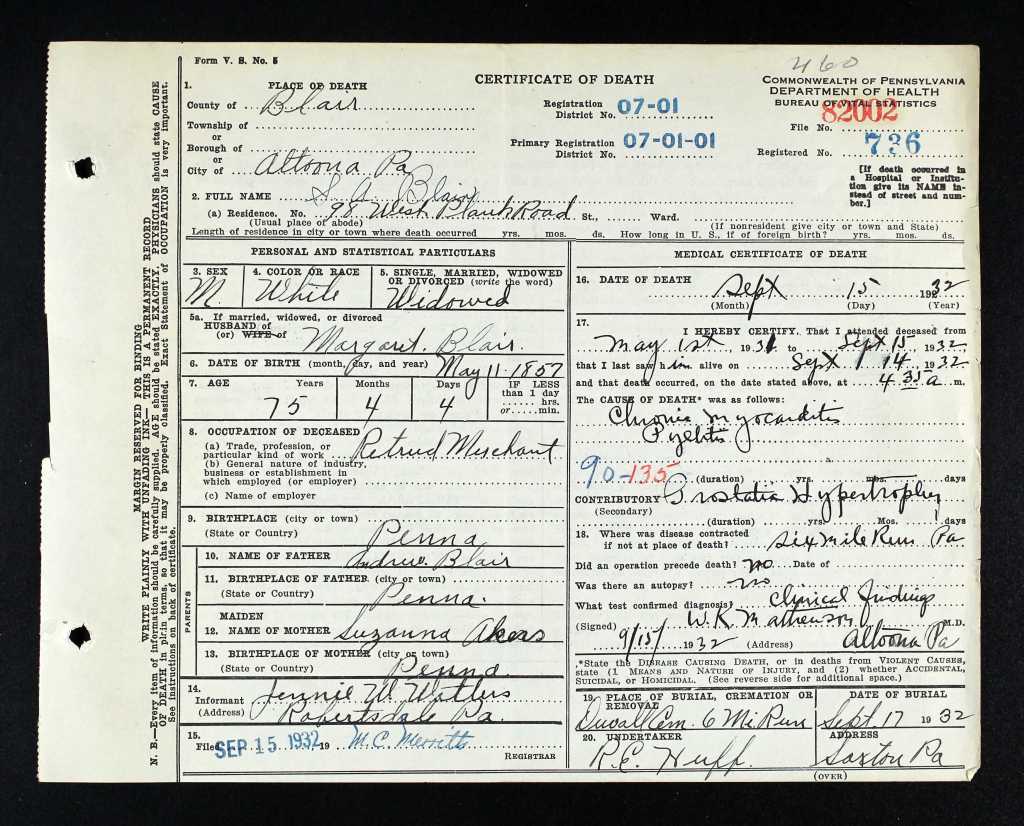 460
Form V. S. No. 5
CERTIFICATE OF DEATH
COMMONWEALTH OF PENNSYLVANIA
DEPARTMENT OF HEALTH
BUREAU OF VITAL STATISTICS
1. PLACE OF DEATH
County of Blair
Township of
or
Borough of
or
City of Altoona Pa
Registration District No. 07-01
Primary Registration District No. 07-01-01
82002
File No.
Registered No. 736
[If death occurred in a Hospital or Institution give its NAME instead of street and number.]
2. FULL NAME S. A. Blair
(a) Residence. No. 98 West Plank Road St., Ward.
(Usual place of abode) (If nonresident give city or town and State)
Length of residence in city or town where death occurred yrs. mos. ds. How long in U. S., if of foreign birth? yrs. mos. ds.
MARGIN RESERVED FOR BINDING
WRITE PLAINLY WITH UNFADING INK—THIS IS A PERMANENT RECORD
N. B.—Every item of information should be carefully supplied. AGE should be stated EXACTLY. PHYSICIANS should state CAUSE
OF DEATH in plain terms, so that it may be properly classified. Exact Statement of OCCUPATION is very important.
See instructions on back of certificate.
PERSONAL AND STATISTICAL PARTICULARS
3. SEX M.
4. COLOR OR RACE White
5. SINGLE, MARRIED, WIDOWED OR DIVORCED (write the word) Widowed
5a. If married, widowed, or divorced
HUSBAND of
(or) WIFE of Margaret. Blair.
6. DATE OF BIRTH (month, day, and year) May 11-1857
7. AGE Years Months Days IF LESS than 1 day
75 4 4 hrs. or min.
8. OCCUPATION OF DECEASED
(a) Trade, profession, or particular kind of work Retired Merchant
(b) General nature of industry, business or establishment in which employed (or employer)
(c) Name of employer
9. BIRTHPLACE (city or town)
(State or Country) Penna
PARENTS
10. NAME OF FATHER Andrew. Blair
11. BIRTHPLACE OF FATHER (city or town)
(State or Country) Penna.
MAIDEN
12. NAME OF MOTHER Suzanna Akers
13. BIRTHPLACE OF MOTHER (city or town)
(State or Country) Penna
14. Informant Jennie W.
(Address) Robertsdale Pa.
15. Filed SEP 15 1932 19 M. C. Merritts
REGISTRAR
MEDICAL CERTIFICATE OF DEATH
16. DATE OF DEATH Sept 15 1932
(Month) (Day) (Year)
17. I HEREBY CERTIFY, That I attended deceased from
May 1st, 1931 to Sept 15, 1932
that I last saw him alive on Sept 14 1932
and that death occurred, on the date stated above, at 4 35 a m.
The CAUSE OF DEATH* was as follows:
Chronic Myocarditis
Pyelitis
90-135 (duration) yrs. mos. days
CONTRIBUTORY Prostatic Hypertrophy
(Secondary)
(duration) yrs. Mos. days
18. Where was disease contracted
if not at place of death? Six Mile Run Pa
Did an operation precede death? no Date of
Was there an autopsy? no
What test confirmed diagnosis? Clinical findings
(Signed) W. K. Mathewson M.D.
9/15/ 1932 (Address) Altoona Pa
*State the DISEASE CAUSING DEATH, or in deaths from VIOLENT CAUSES,
state (1 MEANS AND NATURE OF INJURY, and (2) whether ACCIDENTAL,
SUICIDAL, or HOMICIDAL. (See reverse side for additional space.)
19. PLACE OF BURIAL, CREMATION OR REMOVAL
Duvall Cem. 6 Mi Run
DATE OF BURIAL
Sept. 17 1932
20. UNDERTAKER
R. E. Huff.
ADDRESS
Saxton Pa
(OVER)